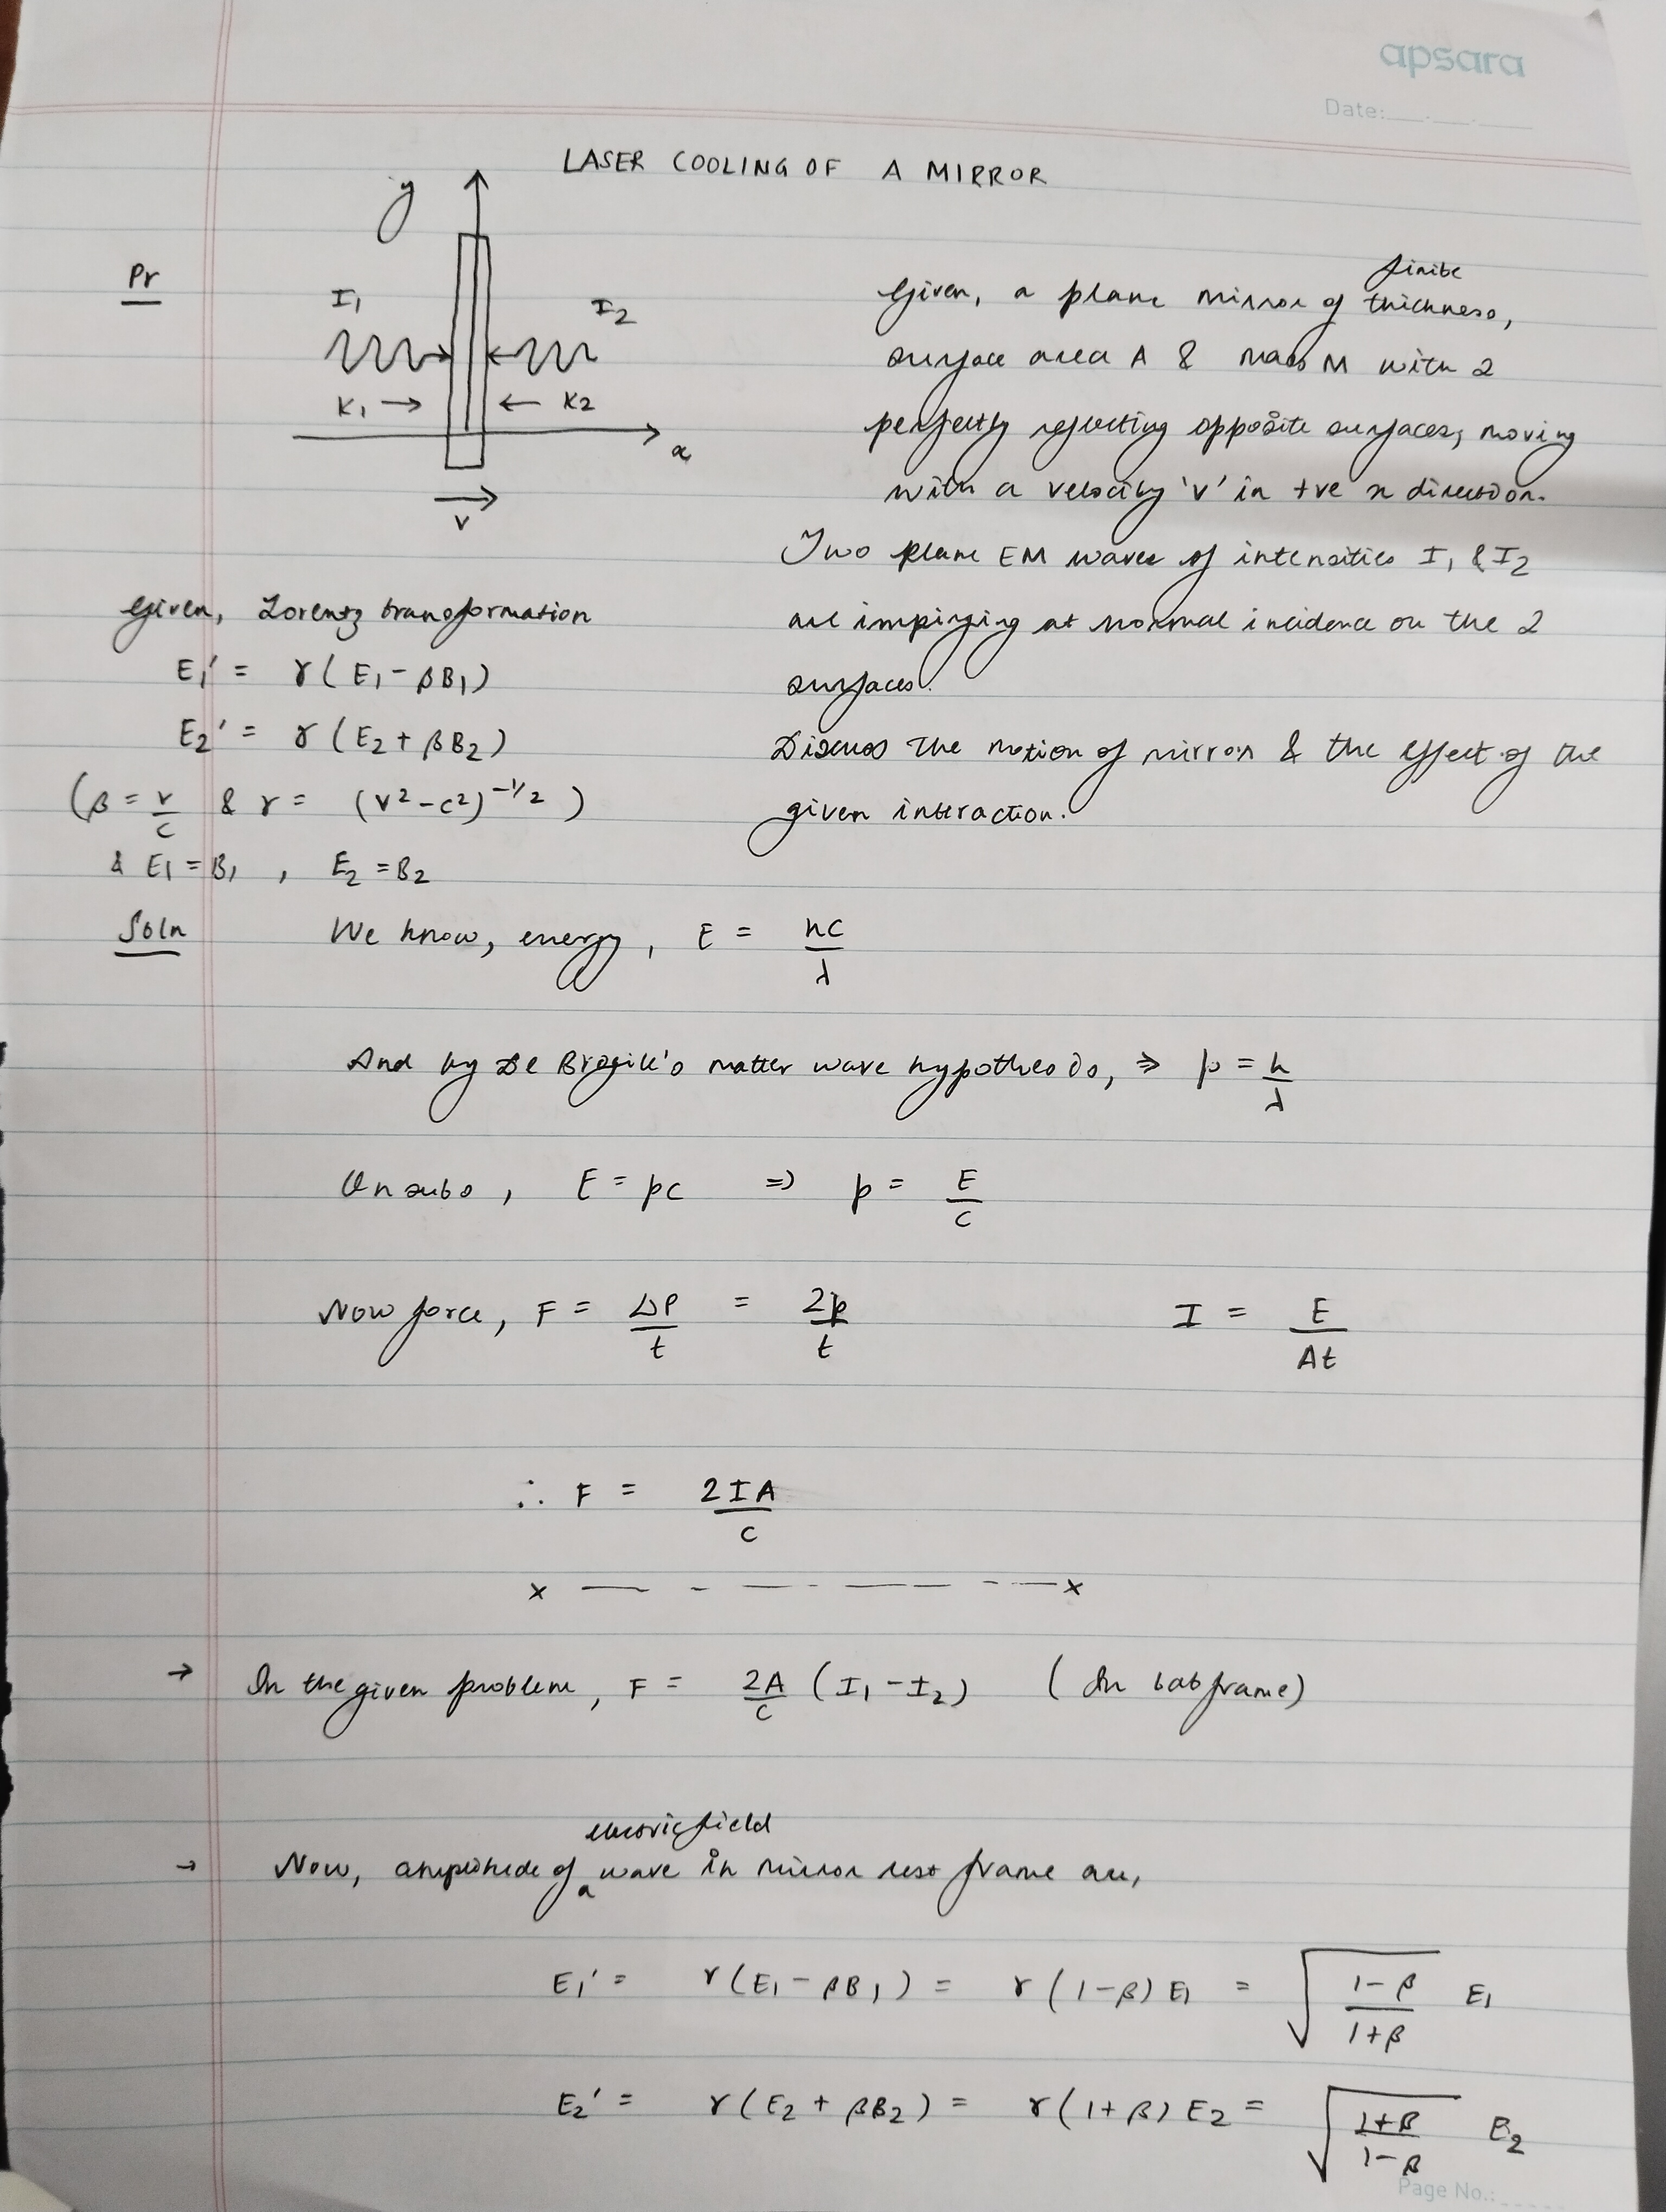 apsara
Date:___.___.___
LASER COOLING OF A MIRROR
y
Pr
I1
I2
K1 → ← K2
x
v
Given, a plane mirror of finite thickness,
surface area A & mass M with 2
perfectly reflecting opposite surfaces, moving
with a velocity 'v' in +ve x direction.
Two plane EM waves of intensities I1 & I2
are impinging at normal incidence on the 2
surfaces.
Discuss the motion of mirror & the effect of the
given interaction.
Given, Lorentz transformation
E1' = γ(E1 - βB1)
E2' = γ(E2 + βB2)
(β = v/c & γ = (v² - c²)^-1/2)
& E1 = B1, E2 = B2
Soln We know, energy, E = hc/λ
And by De Brogile's matter wave hypothesis, ⇒ p = h/λ
On subs, E = pc ⇒ p = E/c
Now force, F = ΔP/t = 2p/t I = E/At
∴ F = 2IA/c
x — - — - — — - — x
→ In the given problem, F = 2A/c (I1 - I2) (In lab frame)
→ Now, amplitude of a electric field wave in mirror rest frame are,
E1' = γ(E1 - βB1) = γ(1-β) E1 = √((1-β)/(1+β)) E1
E2' = γ(E2 + βB2) = γ(1+β) E2 = √((1+β)/(1-β)) E2
Page No.: